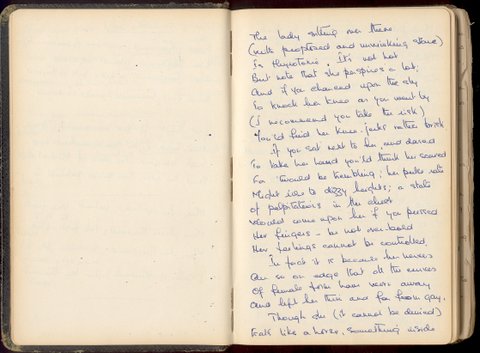 The lady sitting over there
(with proptosed and unwinking stare)
Is thyrotoxic. It's not hot
But note that she perspires a lot,
And if you chanced upon the sly
To knock her knee as you went by
(I recommend you take the risk)
You'd find her knee-jerks rather brisk
If you sat next to her and dared
To take her hand you'd think her scared
For 'twould be trembling; her pulse rate
Might rise to dizzy heights; a state
of palpitations in the chest
would come upon her if you pressed
Her fingers - be not over bold
Her feelings cannot be controlled,
In fact it is because her nerves
Are so on edge that all the curves
Of female form have worn away
And left her thin and far from gay.
Though she (it cannot be denied)
Eats like a horse, something inside